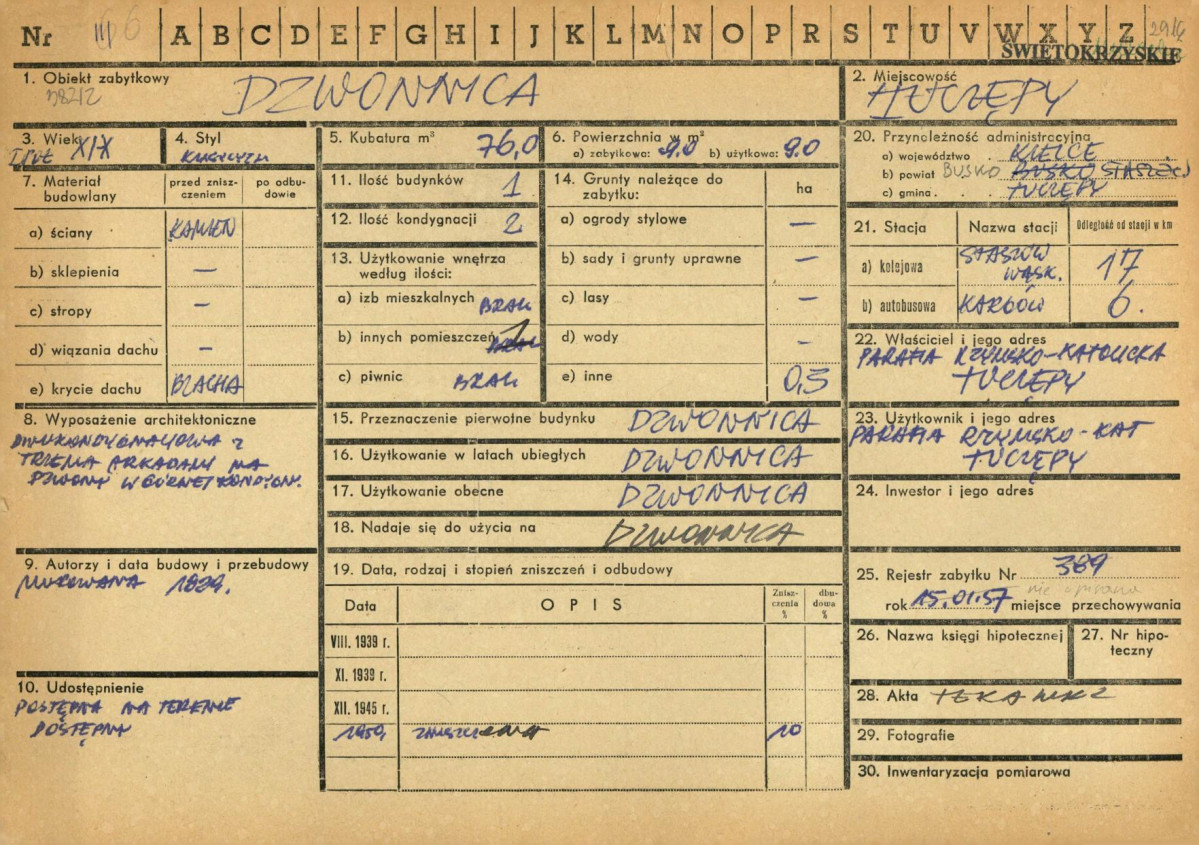 Nr 6 A B C D E F G H I J K L M N O P R S T U V W X Y Z
ŚWIĘTOKRZYSKIE
1. Obiekt zabytkowy DZWONNICA
2. Miejscowość TUCZĘPY
3. Wiek XIX
4. Styl
5. Kubatura m³ 76,0
6. Powierzchnia w m²
a) zabytkowa: 9.0 b) użytkowa: 9.0
7. Materiał budowlany
przed zniszczeniem
po odbudowie
a) ściany KAMIEŃ
b) sklepienia —
c) stropy —
d) wiązania dachu —
e) krycie dachu BLACHA
8. Wyposażenie architektoniczne
DWUKONDYGNACYJOWA Z
TRZEMA ARKADAMI NA
DZWONY W GÓRNEJ KONDYGN.
9. Autorzy i data budowy i przebudowy
MUROWANA 1829.
10. Udostępnienie
DOSTĘPNA NA TERENIE
DOSTĘPNY
11. Ilość budynków 1
12. Ilość kondygnacji 2
13. Użytkowanie wnętrza
według ilości:
a) izb mieszkalnych BRAK
b) innych pomieszczeń 1
c) piwnic BRAK
14. Grunty należące do
zabytku:
ha
a) ogrody stylowe —
b) sady i grunty uprawne —
c) lasy —
d) wody —
e) inne 0,3
15. Przeznaczenie pierwotne budynku DZWONNICA
16. Użytkowanie w latach ubiegłych DZWONNICA
17. Użytkowanie obecne DZWONNICA
18. Nadaje się do użycia na DZWONNICA
19. Data, rodzaj i stopień zniszczeń i odbudowy
Data
OPIS
Zniszczenia %
dbudowa %
VIII. 1939 r.
XI. 1939 r.
XII. 1945 r.
1959. 10
20. Przynależność administracyjna
a) województwo KIELCE
b) powiat BUSKO BUSKO STASZÓW
c) gmina TUCZĘPY
21. Stacja
Nazwa stacji
Odległość od stacji w km
a) kolejowa STASZÓW WĄSK. 17
b) autobusowa 6.
22. Właściciel i jego adres
PARAFIA RZYMSKO-KATOLICKA
TUCZĘPY
23. Użytkownik i jego adres
PARAFIA RZYMSKO-KAT
TUCZĘPY
24. Inwestor i jego adres
25. Rejestr zabytku Nr 389
rok 15.01.57 miejsce przechowywania
26. Nazwa księgi hipotecznej
27. Nr hipoteczny
28. Akta TEKA WKZ
29. Fotografie
30. Inwentaryzacja pomiarowa